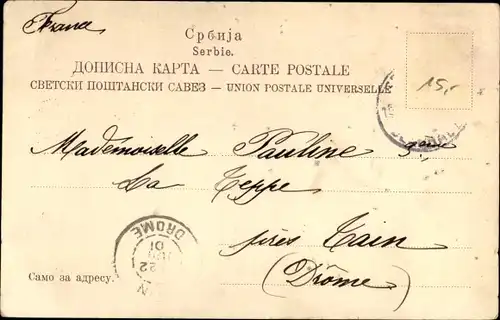 Србија
Serbie.
ДОПИСНА КАРТА — CARTE POSTALE
СВЕТСКИ ПОШТАНСКИ САВЕЗ – UNION POSTALE UNIVERSELLE
15,-
Mademoiselle Pauline
La Teppe
près Tain
(Drôme)
DROME
01
22
Само за адресу.